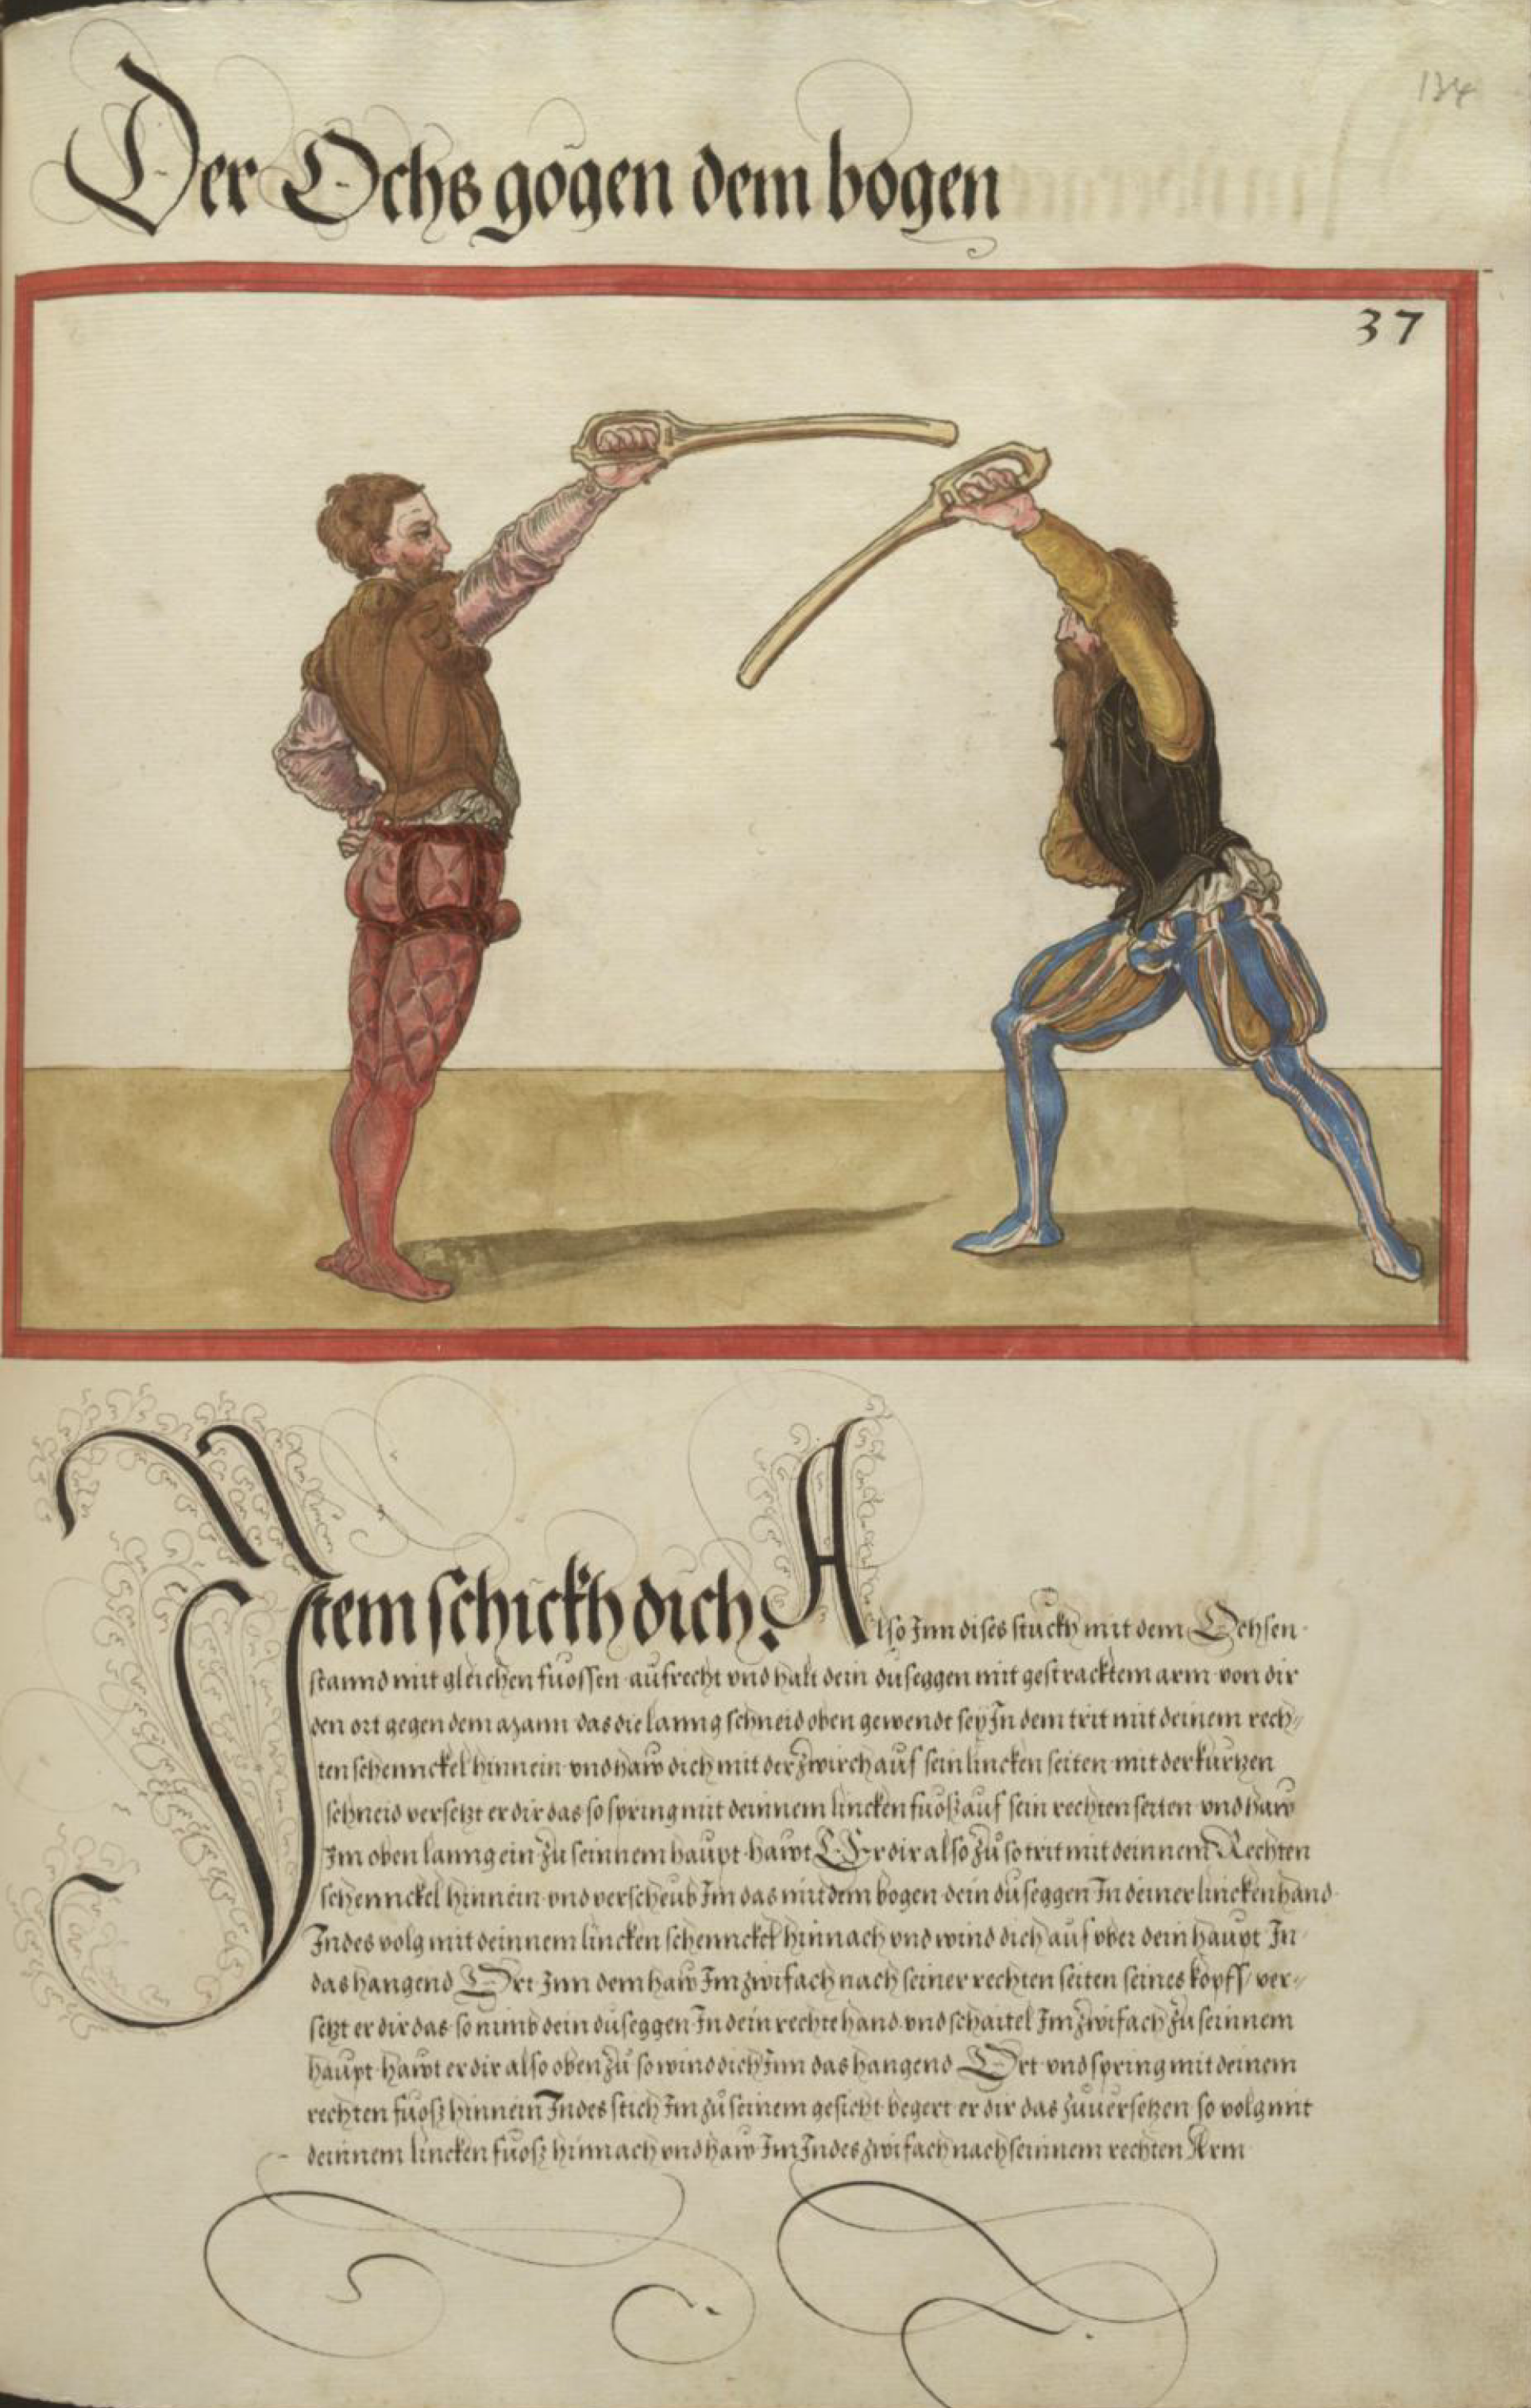 134
Der Ochs gögen dem bogen
37
Item schickh dich Also Inn dises stuckh mit dem Ochsen
stannd mit gleichen fuossen aufrecht vnd halt dein duseggen mit gestracktem arm von dir
den ort gegen dem mann das die lanng schneid oben gewendt sey In dem trit mit deinem rech//
ten schennckel hinnein vnd haw dich mit der zwirch auf sein lincken seiten mit der kurtzen
schneid versetzt er dir das so spring mit deinnem lincken fuosz auf sein rechten seiten vnd haw
Im oben lanng ein zu seinnem haupt hawt Er dir also zu so trit mit deinnem Rechten
schennckel hinnein vnd verscheub Im das mit dem bogen dein duseggen In deiner lincken hand
Indes volg mit deinnem lincken schennckel hinnach vnd wind dich auf vber dein haupt In
das hangend Ort Inn dem haw Im zwifach nach seiner rechten seiten seines kopffs ver//
setzt er dir das so nimb dein duseggen In dein rechte hand vnd schaitel Im zwifach zu seinnem
haupt hawt er dir also oben zu so wind dich Inn das hangend Ort vnd spring mit deinem
rechten fuosz hinnein Indes stich Im zu seinem gesicht begert er dir das zuuersetzen so volg mit
deinnem lincken fuosz hinnach vnd haw Im Indes zwifach nach seinnem rechten Arm